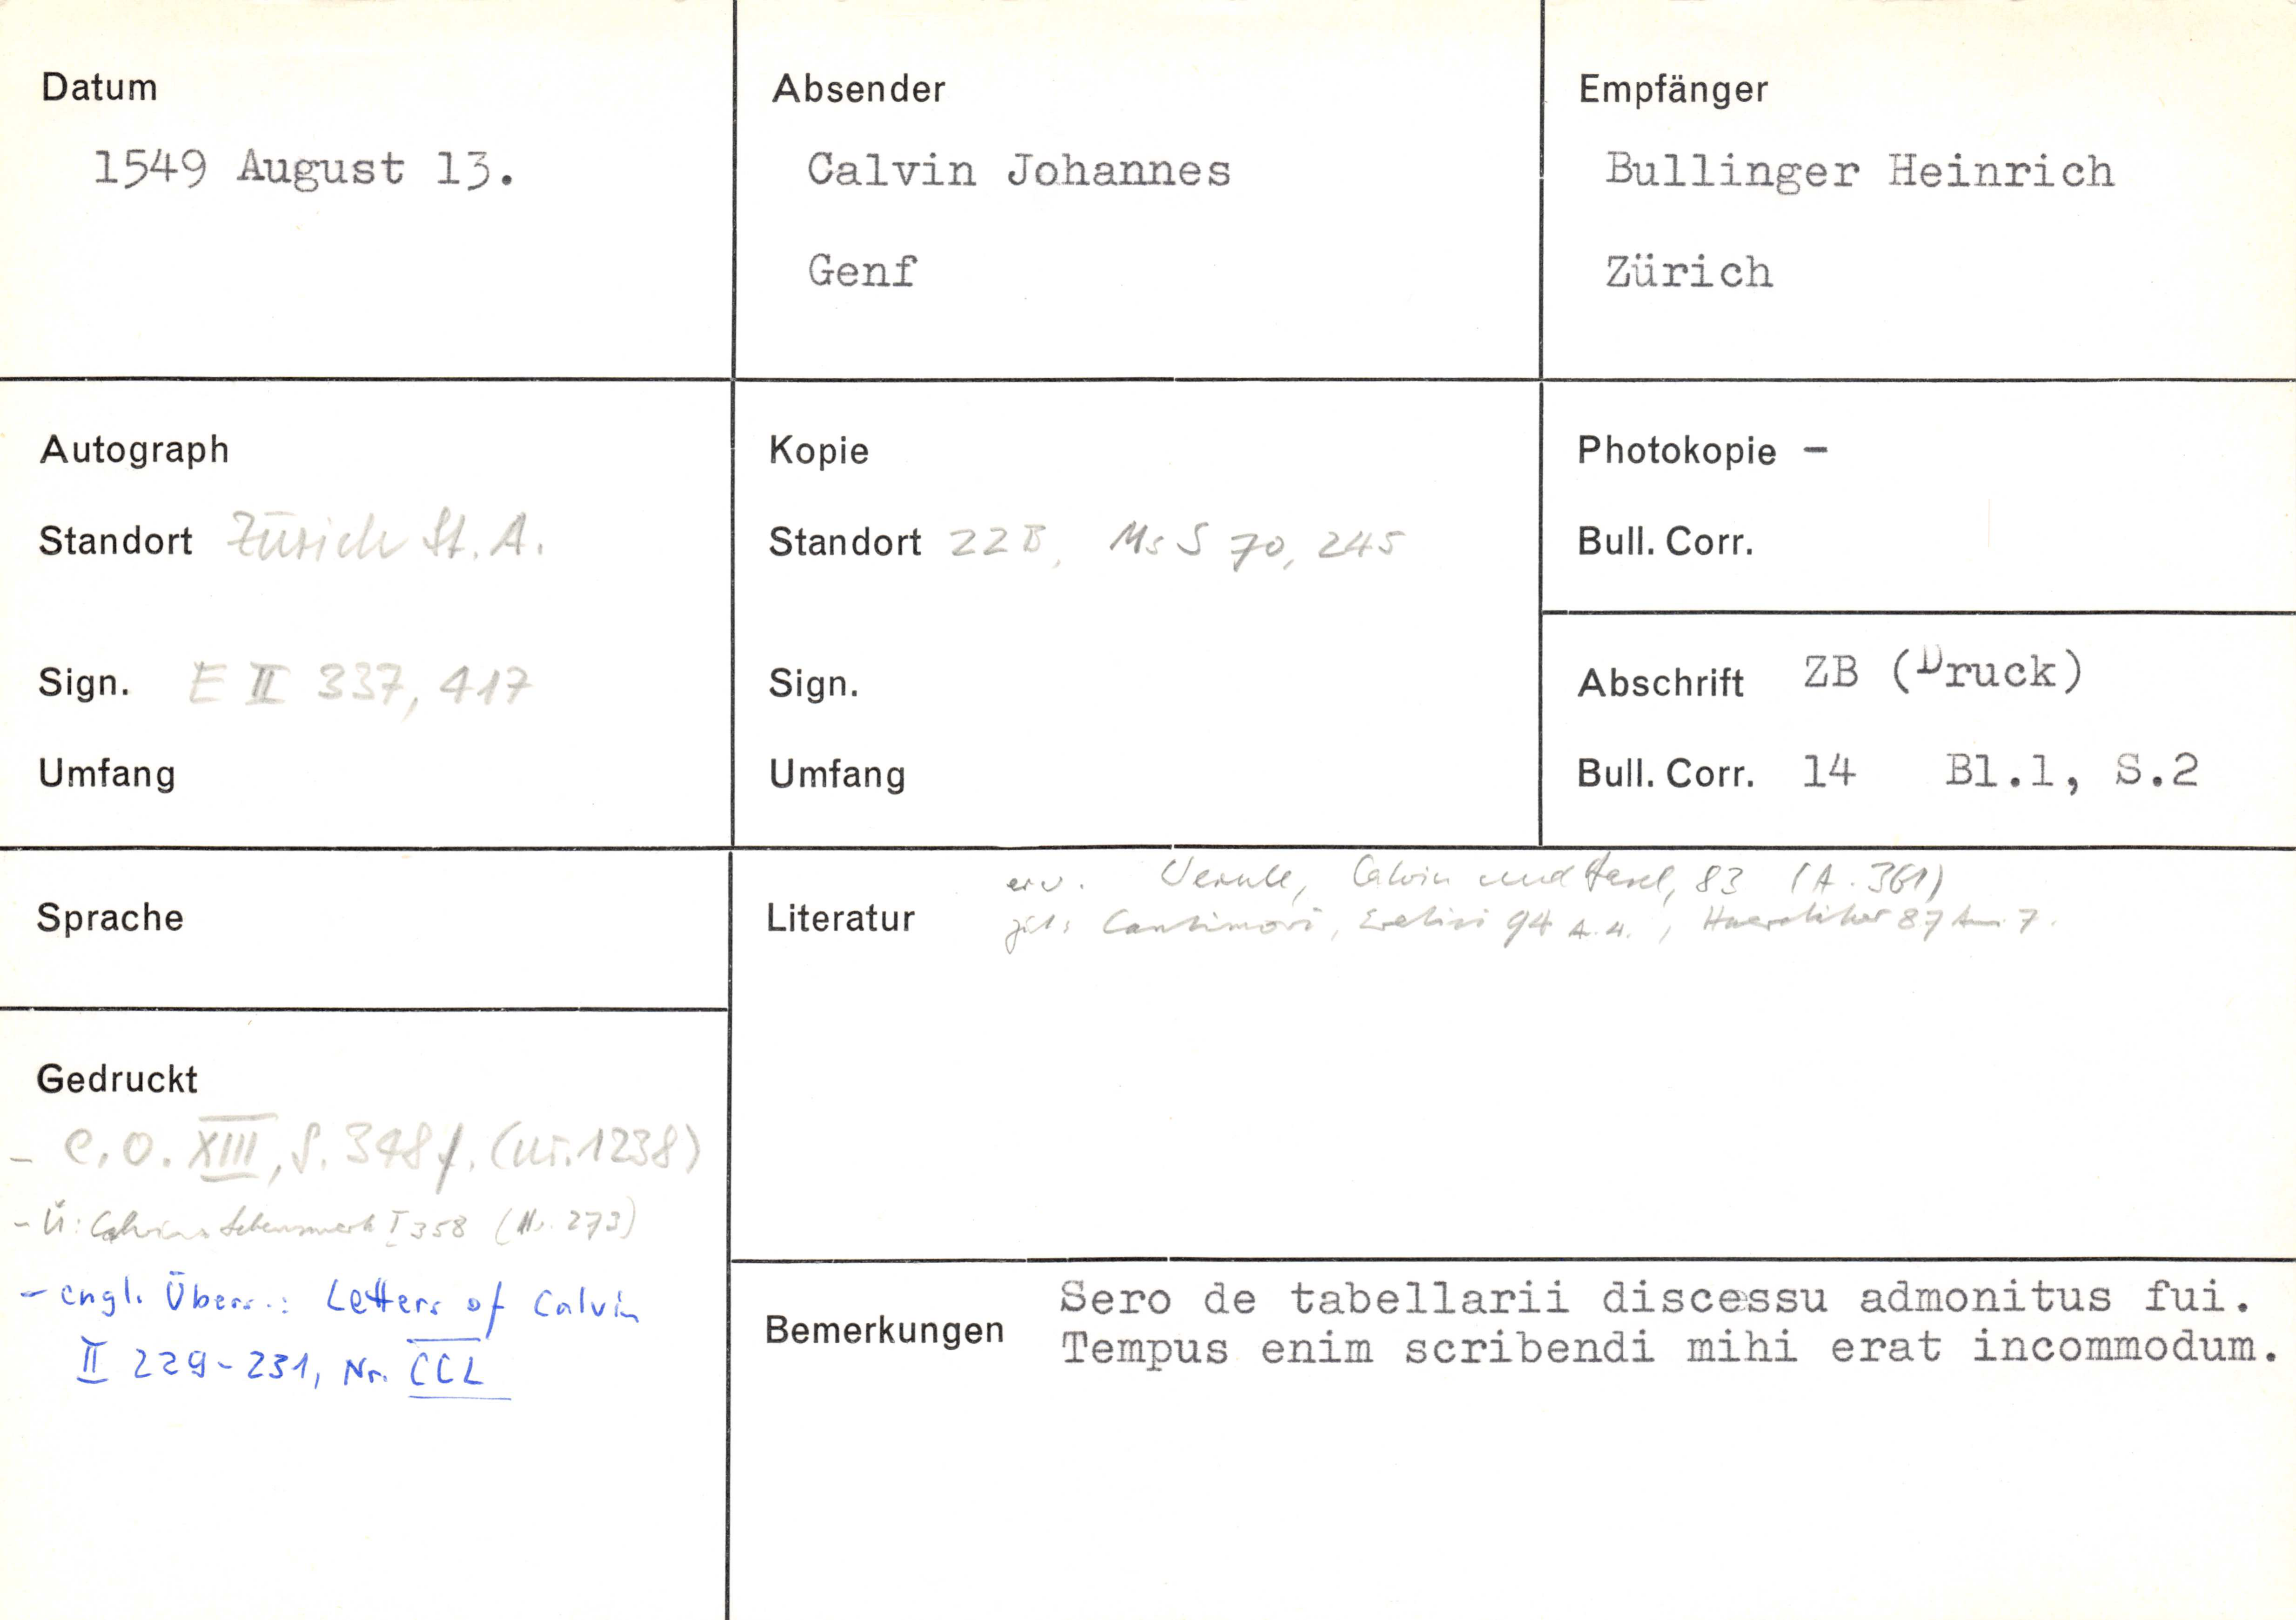 Datum
1549 August 13.
Absender
Calvin Johannes
Genf
Empfänger
Bullinger Heinrich
Zürich
Autograph
Standort Zürich St. A.
Sign. E II 337, 417
Umfang
Kopie
Standort ZZB, Ms S 70, 245
Sign.
Umfang
Photokopie -
Bull. Corr.
Abschrift ZB (Druck)
Bull. Corr. 14 Bl.1, S.2
Sprache
Literatur
erw. Wernle, Calvin und Basel, 83 (A. 361)
zit: Cantimori, Eretici 94 A. 4., Haeretiker 87 Anm 7.
Gedruckt
- C.O. XIII, S. 348 f. (Nr. 1238)
- Ü: Calvins Lebenswerk I 358 (Nr. 273)
- engl. Übers.: Letters of Calvin
II 229-231, Nr. CCL
Bemerkungen
Sero de tabellarii discessu admonitus fui.
Tempus enim scribendi mihi erat incommodum.